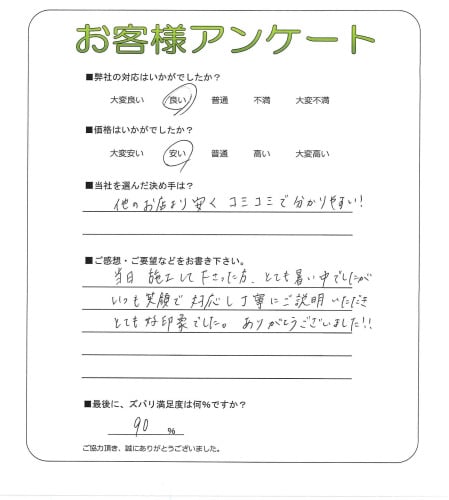 お客様アンケート
■弊社の対応はいかがでしたか?
大変良い 良い 普通 不満 大変不満
■価格はいかがでしたか?
大変安い 安い 普通 高い 大変高い
■当社を選んだ決め手は?
他のお店より安く コミコミで分かりやすい!
■ご感想・ご要望などをお書き下さい。
当日 施工して下さった方、とても暑い中でしたが
いつも笑顔で対応し丁寧にご説明いただき
とても好印象でした。ありがとうございました!!
■最後に、ズバリ満足度は何%ですか?
90 %
ご協力頂き、誠にありがとうございました。